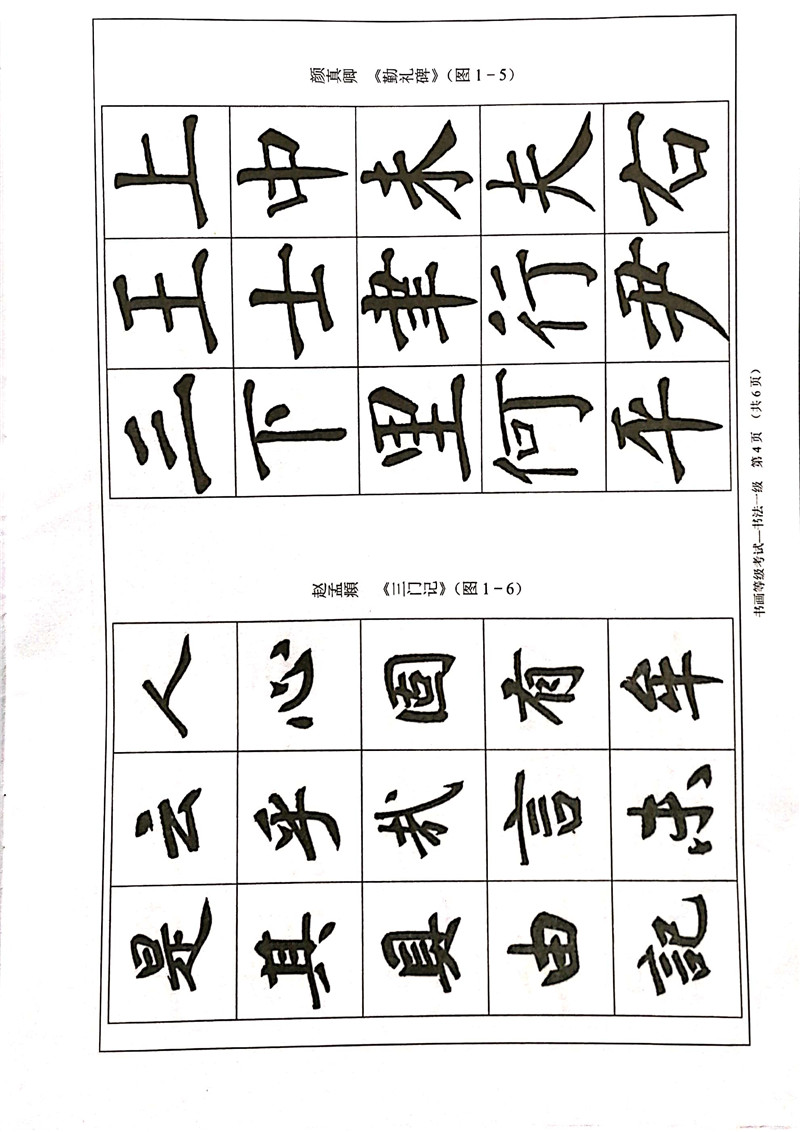 是云人
其乎心
具哉園
由言有
記年
赵孟頫 《三门记》(图1-6)
三王上
下士中
里聿未
何行夫
平尹石
颜真卿 《勤礼碑》(图1-5)
书画等级考试—书法一级 第4页 (共6页)